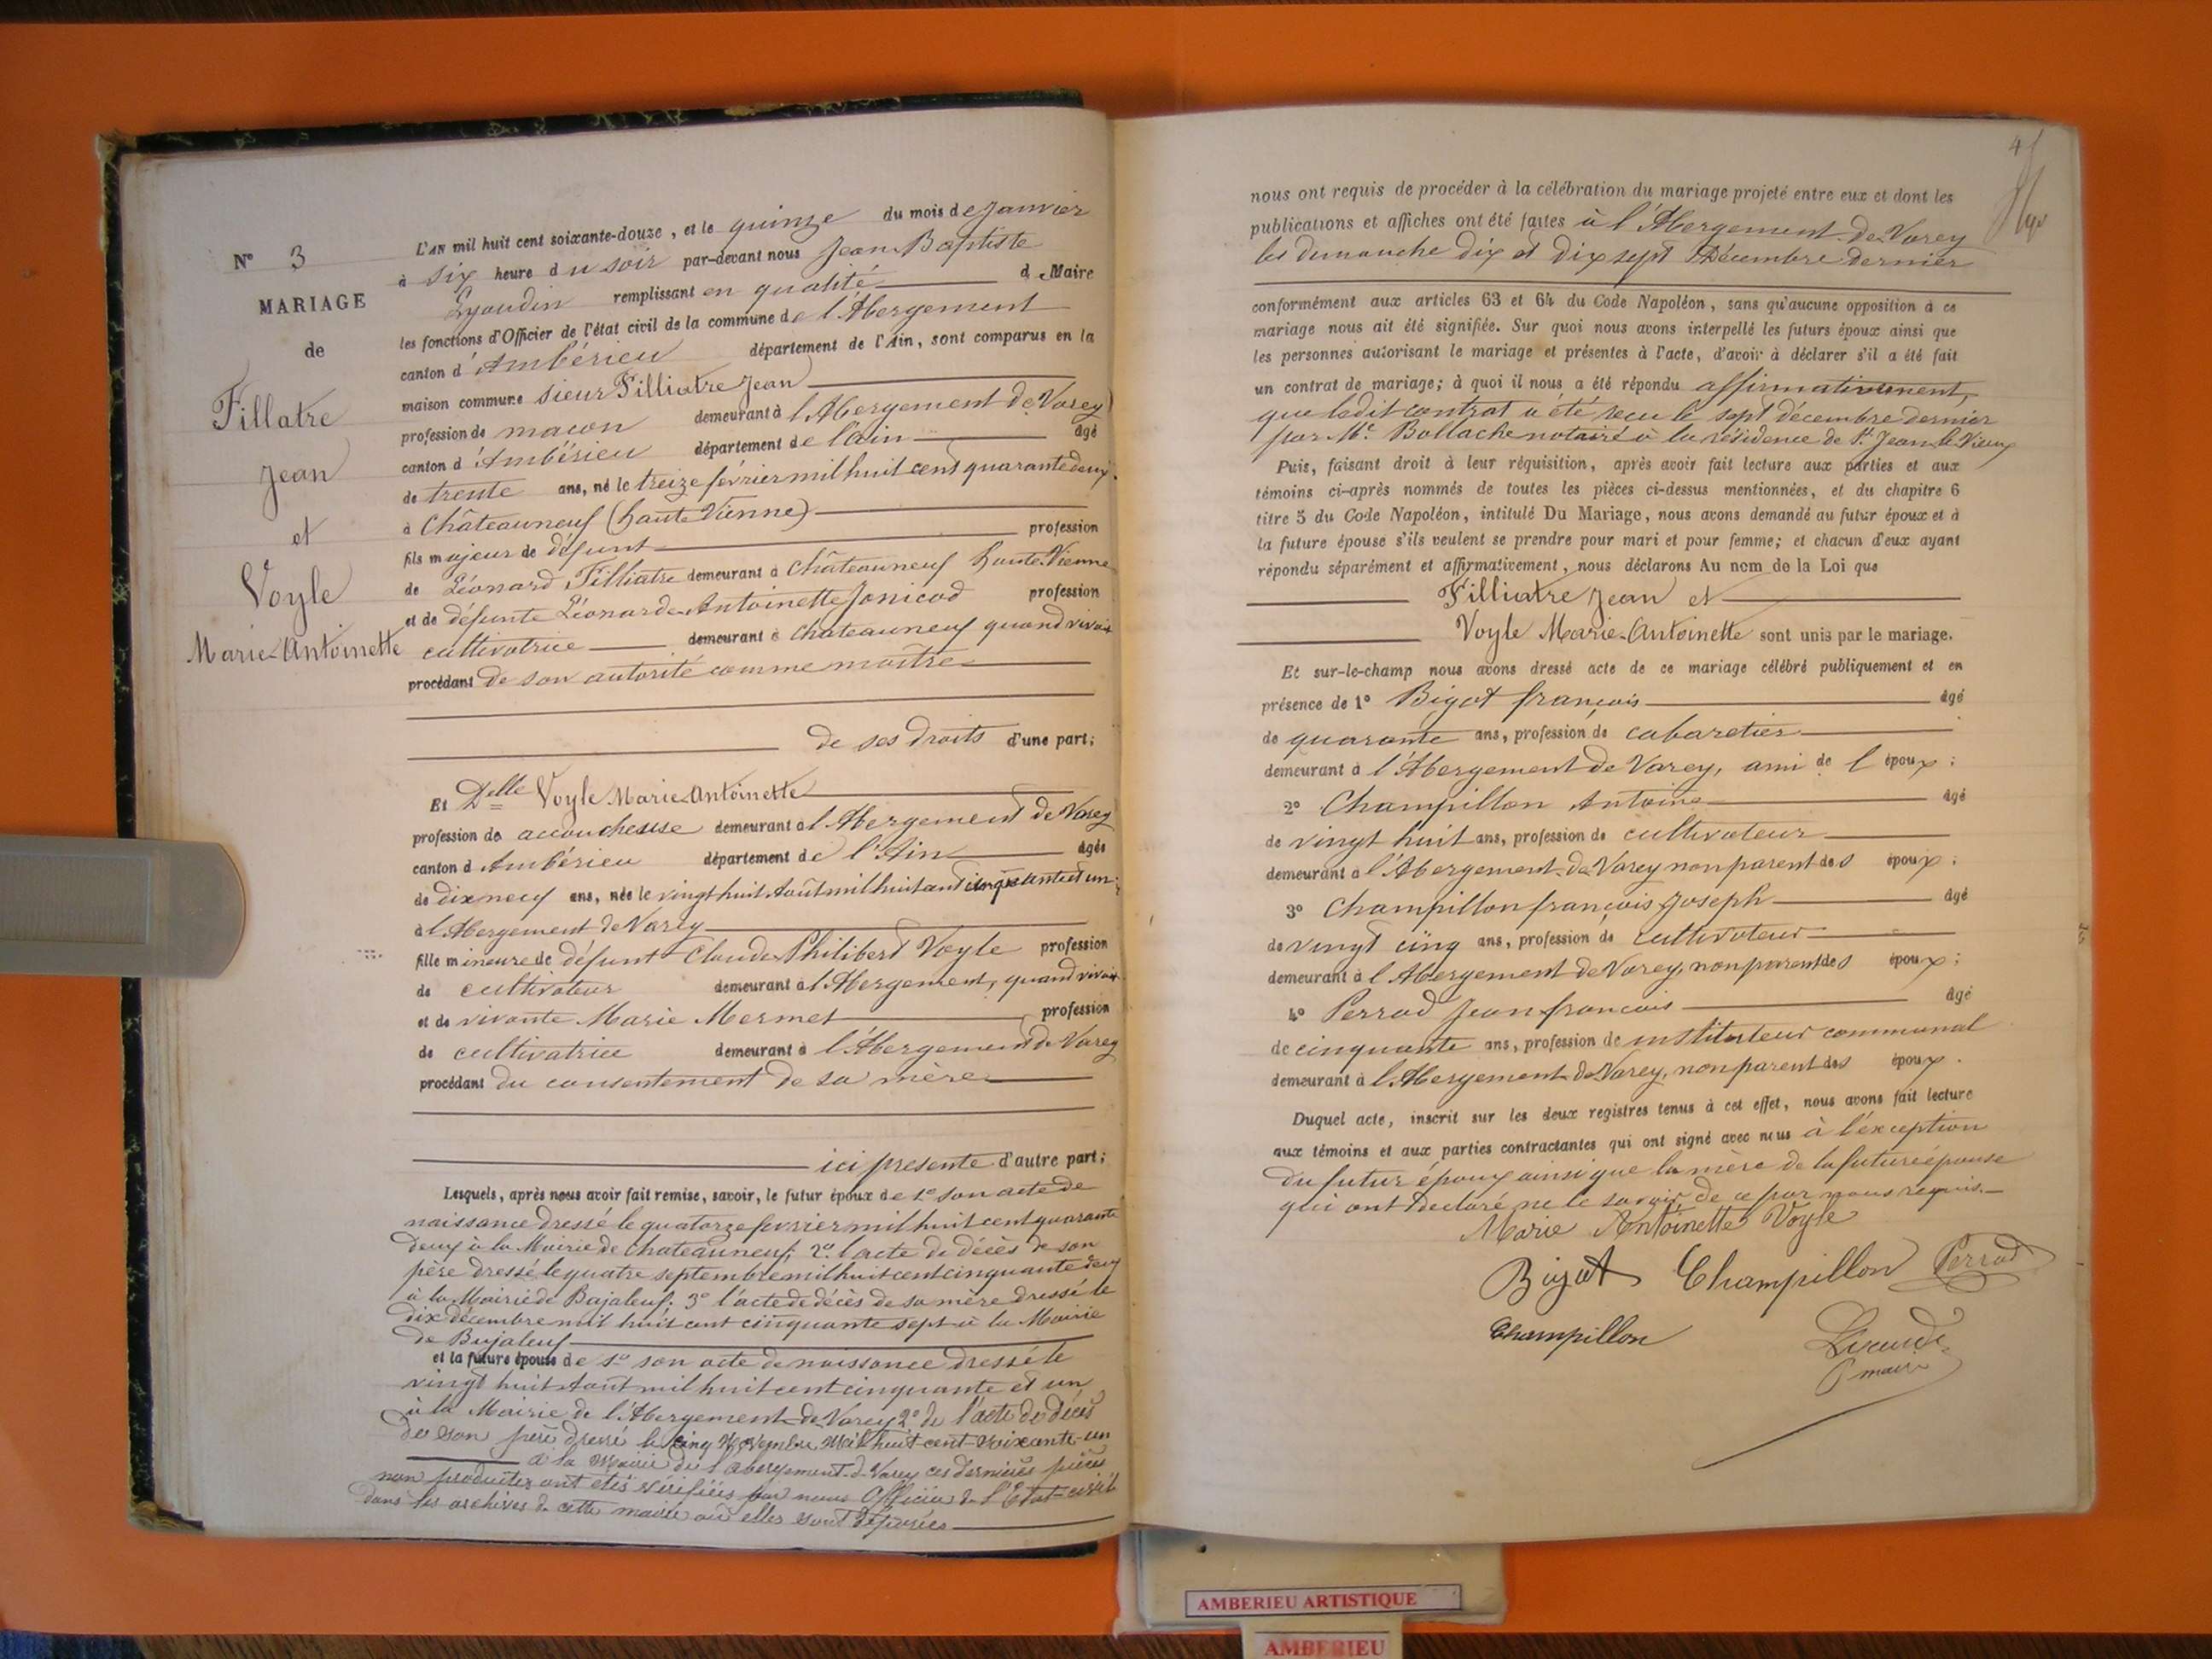 N° 3
MARIAGE
de
Fillatre
Jean
et
Voyle
Marie-Antoinette
L'AN mil huit cent soixante-douze, et le quinze du mois de Janvier
à six heure du soir par-devant nous Jean Baptiste
remplissant en qualité de Maire
les fonctions d'Officier de l'état civil de la commune de l'Abergement
canton d'Ambérieu département de l'Ain, sont comparus en la
maison commune sieur Filliatre Jean
profession de maçon demeurant à l'Abergement de Varey
canton d'Ambérieu département de l'ain âgé
de trente ans, né le treize février mil huit cent quarante deux
à Châteauneuf (haute Vienne)
fils majeur de défunt profession
de Léonard Filliatre demeurant à Châteauneuf haute Vienne
et de défunte Léonarde Antoinette Jonicod profession
cultivatrice demeurant à chateauneuf quand vivait
procédant de son autorité comme maître
de ses droits d'une part;
Et Delle Voyle Marie-Antoinette
profession de accoucheuse demeurant à l'Abergement de Varey
canton d Ambérieu département de l'Ain âgée
de dix neuf ans, née le vingt huit Août mil huit cent cinquante et un
à l'Abergement de Varey
fille mineure de défunt Claude Philibert Voyle profession
de cultivateur demeurant à l'Abergement, quand vivait
et de vivante Marie Mermet profession
de cultivatrice demeurant à l'Abergement de Varey
procédant du consentement de sa mère
ici présente d'autre part;
Lesquels, après nous avoir fait remise, savoir, le futur époux de 1° son acte de
naissance dressé le quatorze fevrier mil huit cent quarante
deux à la Mairie de Chateauneuf; 2° l'acte de décès de son
père dressé le quatre septembre mil huit cent cinquante deux
à la Mairie de Bujaleuf. 3° l'acte de décès de sa mère dressé le
dix décembre mil huit cent cinquante sept à la Mairie
de Bujaleuf
et la future épouse de 1° son acte de naissance dressé le
vingt huit Aout mil huit cent cinquante et un
à la Mairie de l'Abergement-de-Varey 2° de l'acte de décès
de son père dressé le cinq Novembre Mil huit-cent-soixante-un
à la Mairie de l'abergement-d-Varey ces dernières pièces
non produites ont étés vérifiées par nous Officier de l'Etat-civil
dans les archives de cette mairie où elles sont déposées
4
nous ont requis de procéder à la célébration du mariage projeté entre eux et dont les
publications et affiches ont été faites à l'Abergement-de-Varey
les dimanche dix et dix sept Décembre dernier
conformément aux articles 63 et 64 du Code Napoléon, sans qu'aucune opposition à ce
mariage nous ait été signifiée. Sur quoi nous avons interpellé les futurs époux ainsi que
les personnes autorisant le mariage et présentes à l'acte, d'avoir à déclarer s'il a été fait
un contrat de mariage; à quoi il nous a été répondu affirmativement,
que ledit contrat a été recu le sept décembre dernier
par Me. Bollache notaire à la résidence de St Jean le Vieux
Puis, faisant droit à leur réquisition, après avoir fait lecture aux parties et aux
témoins ci-après nommés de toutes les pièces ci-dessus mentionnées, et du chapitre 6
titre 5 du Code Napoléon, intitulé Du Mariage, nous avons demandé au futur époux et à
la future épouse s'ils veulent se prendre pour mari et pour femme; et chacun d'eux ayant
répondu séparément et affirmativement, nous déclarons Au nom de la Loi que
Filliatre Jean et
Voyle Marie-Antoinette sont unis par le mariage.
Et sur-le-champ nous avons dressé acte de ce mariage célébré publiquement et en
présence de 1° Bigot françois âgé
de quarante ans, profession de cabaretier
demeurant à l'Abergement de Varey, ami de l époux;
2° Champillon Antoine âgé
de vingt huit ans, profession de cultivateur
demeurant à l'Abergement-de-Varey non parent des époux;
3° Champillon françois Joseph âgé
de vingt cinq ans, profession de cultivateur
demeurant à l'Abergement de Varey, non parent des époux;
4° Perrod Jean françois âgé
de cinquante ans, profession de instituteur communal
demeurant à l'Abergement-de-Varey, non parent des époux.
Duquel acte, inscrit sur les deux registres tenus à cet effet, nous avons fait lecture
aux témoins et aux parties contractantes qui ont signé avec nous à l'exception
du futur époux ainsi que la mère de la future épouse
qui ont déclaré ne le savoir de ce par nous requis.
Marie Antoinette Voyle
Bigot Champillon Perrod
Champillon
maire
AMBERIEU ARTISTIQUE
AMBERIEU